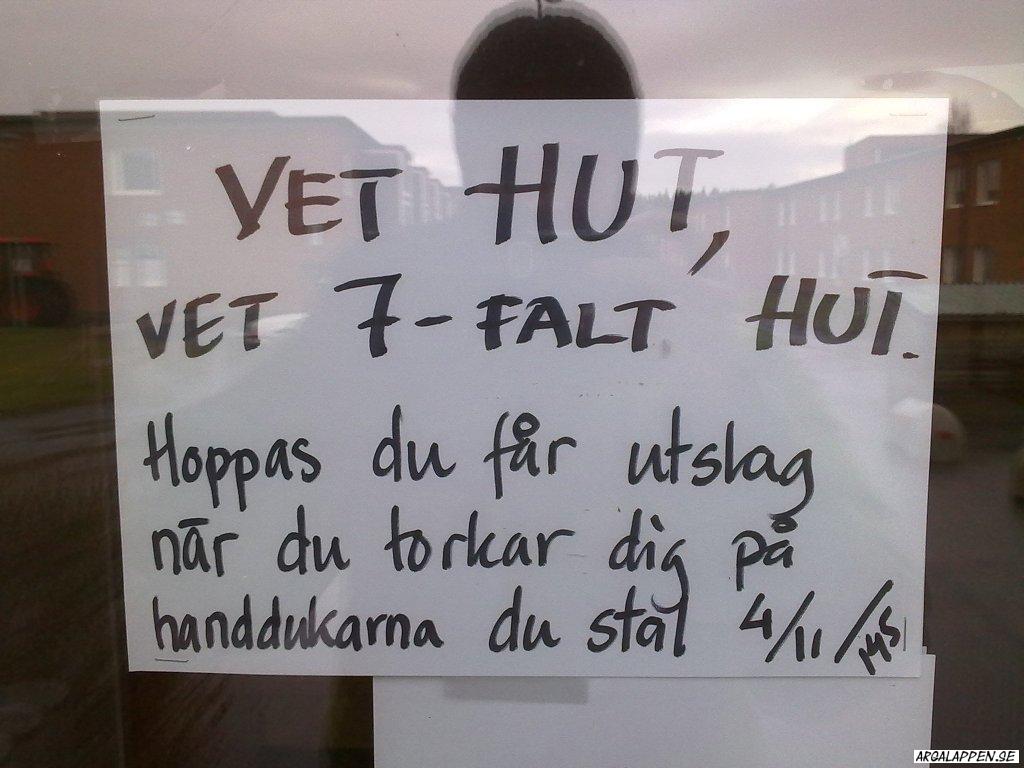 VET HUT,
VET 7-FALT HUT.
Hoppas du får utslag
när du torkar dig på
handdukarna du stal 4/11/
ARGALAPPEN.SE